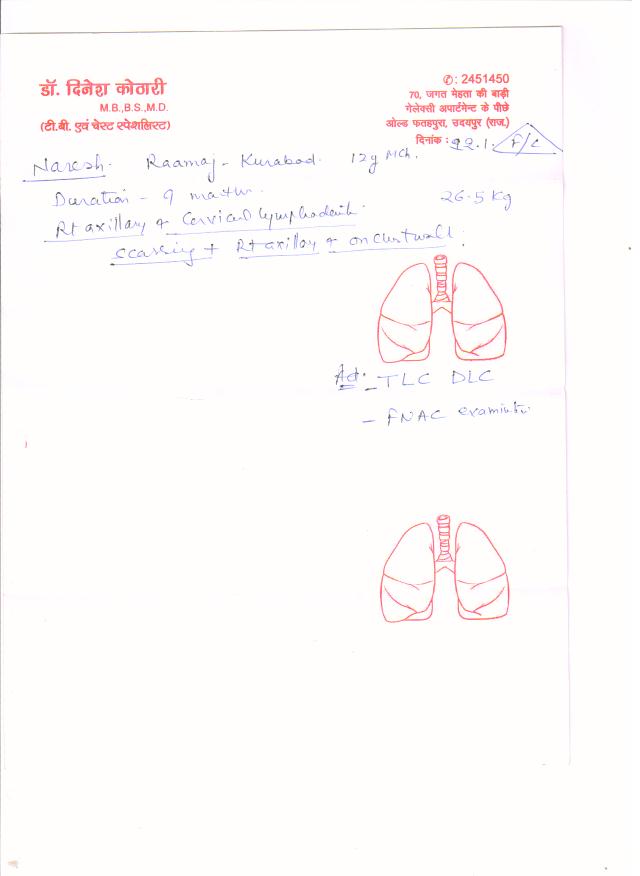 डॉ. दिनेश कोठारी
M.B.,B.S.,M.D.
(टी.बी. एवं चेस्ट स्पेशलिस्ट)
✆: 2451450
70, जगत मेहता की बाड़ी
गेलेक्सी अपार्टमेन्ट के पीछे
ओल्ड फतहपुरा, उदयपुर (राज.)
दिनांक : 12.1. F/C
Naresh. Raamaj - Kurabad. 12y MCh.
Duration - 9 months.
26.5 Kg
Rt axillary & Cervical lymphadenitis
scarring + Rt axillary & on chest wall.
Ad. - TLC DLC
- FNAC examination